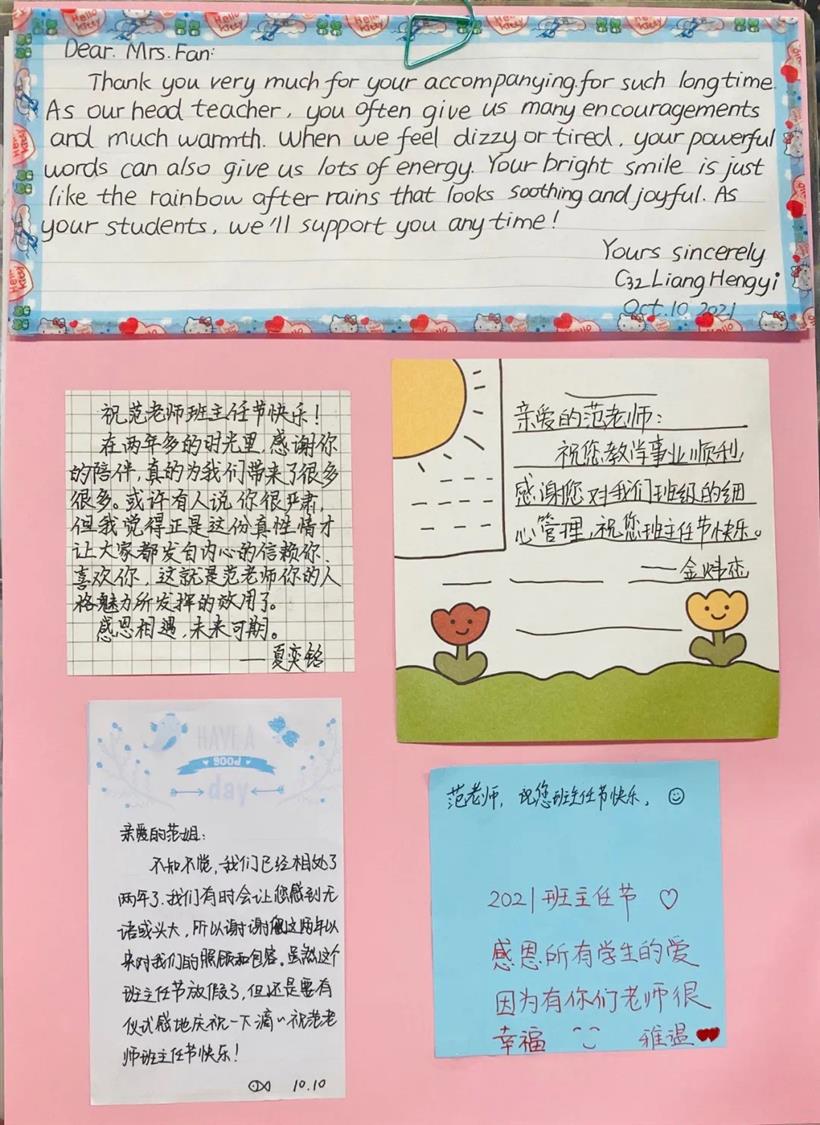 Dear. Mrs. Fan:
Thank you very much for your accompanying for such long time.
As our head teacher, you often give us many encouragements
and much warmth. When we feel dizzy or tired, your powerful
words can also give us lots of energy. Your bright smile is just
like the rainbow after rains that looks soothing and joyful. As
your students, we'll support you any time!
Yours sincerely
C32 Liang Hengyi
Oct.10 2021
祝范老师班主任节快乐!
在两年多的时光里,感谢你
的陪伴,真的为我们带来了很多
很多。或许有人说你很严肃,
但我觉得正是这份真性情才
让大家都发自内心的信赖你、
喜欢你,这就是范老师你的人
格魅力所发挥的效用了。
感恩相遇,未来可期。
——夏奕铭
亲爱的范老师:
祝您教学事业顺利,
感谢您对我们班级的细
心管理,祝您班主任节快乐。
——金炜
HAVE A
GOOD
day
亲爱的范姐:
不知不觉,我们已经相处了
两年了.我们有时会让您感到无
语或头大,所以谢谢您这两年以
来对我们的照顾和包容。虽然这个
班主任节放假了,但还是要有
仪式感地庆祝一下滴~祝范老
师班主任节快乐!
10.10
范老师,祝您班主任节快乐。
2021班主任节
感恩所有学生的爱
因为有你们老师很
幸福 雅温